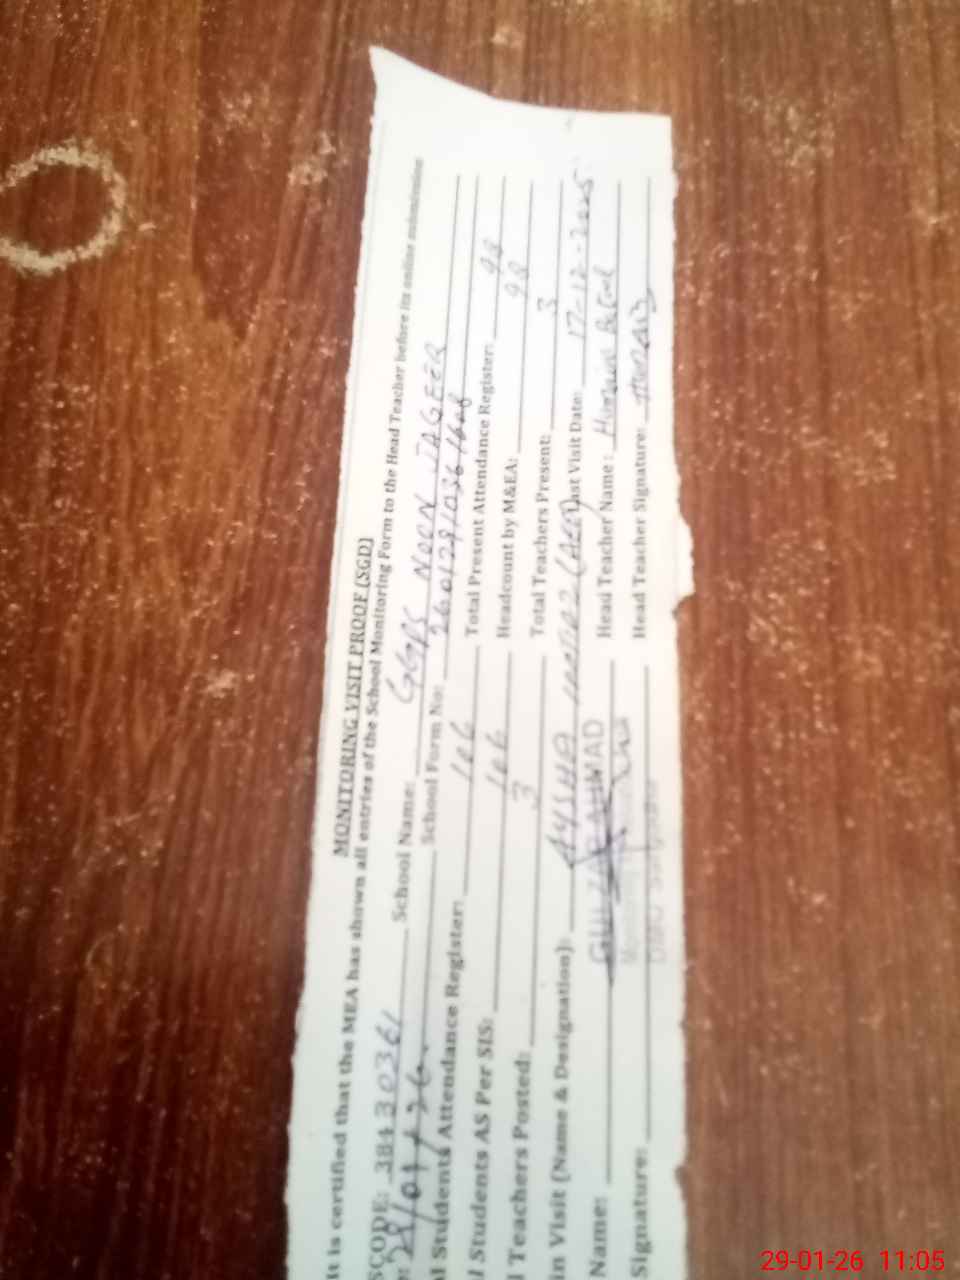 MONITORING VISIT PROOF (SGD)
It is certified that the MEA has shown all entries of the School Monitoring Form to the Head Teacher before its online submission
SCODE: 38430361 School Name: GGPS NOON JAGEER
28/01/26. School Form No:
l Students Attendance Register: 106 Total Present Attendance Register: 98
l Students AS Per SIS: 106 Headcount by M&EA: 98
l Teachers Posted: 3 Total Teachers Present: 3
in Visit (Name & Designation): AYSHA (AEO) Last Visit Date: 17-12-2025
Name: GULZAR AHMAD Head Teacher Name:
Signature: Head Teacher Signature:
29-01-26 11:05